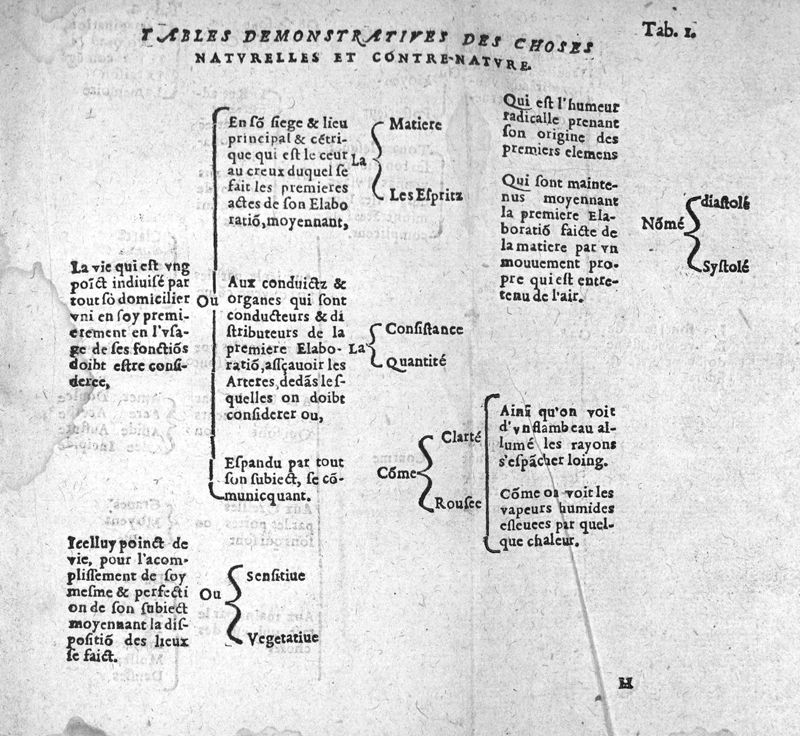 TABLES DEMONSTRATIVES DES CHOSES
NATVRELLES ET CONTRE-NATVRE.
Tab. 1.
La vie qui est vng
poĩct indiuisé par
tout sõ domicilier
vni en soy premi-
erement en l'vsa-
ge de ses fonctiõs
doibt estre consi-
deree,
Ou
En sõ siege & lieu
principal & cẽtri-
que qui est le ceur
au creux duquel se
fait les premieres
actes de son Elabo
ratiõ, moyennant,
La
Matiere
Les Espritz
Qui est l'humeur
radicalle prenant
son origine des
premiers elemens
Qui sont mainte-
nus moyennant
la premiere Ela-
boratiõ faicte de
la matiere par vn
mouuement pro-
pre qui est entre-
tenu de l'air.
Nõmé
diastolé
Systolé
Aux conduictz &
organes qui sont
conducteurs & di
stributeurs de la
premiere Elabo-
ratiõ, assçauoir les
Arteres, dedãs les-
quelles on doibt
considerer ou,
La
Consistance
Quantité
Espandu par tout
son subiect, se cõ-
municquant.
Cõme
Clarté
Rousee
Ainsi qu'on voit
d'vn flambeau al-
lumé les rayons
s'espãcher loing.
Cõme on voit les
vapeurs humides
esleuees par quel-
que chaleur.
Icelluy poinct de
vie, pour l'acom-
plissement de soy
mesme & perfecti
on de son subiect
moyennant la dis-
positiõ des lieux
se faict.
Ou
Sensitiue
Vegetatiue
H